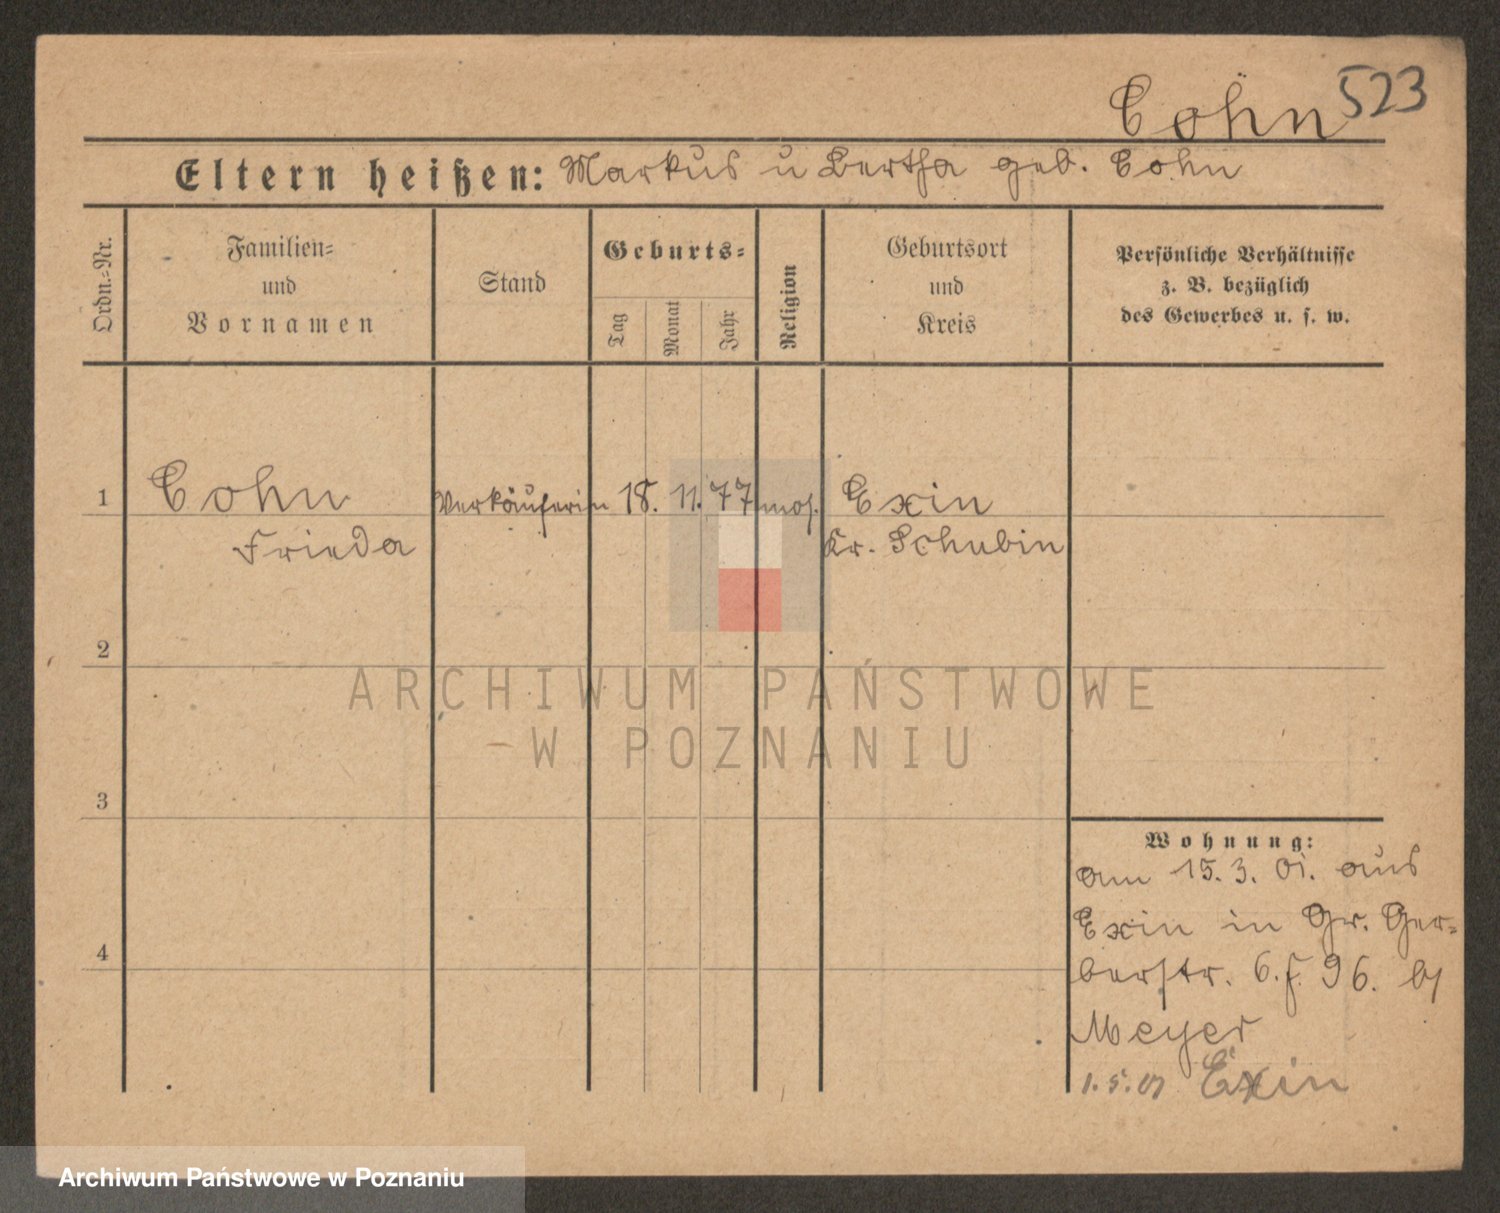 Cohn 523
Eltern heißen: Markus u Bertha geb. Cohn
Ordn.=Nr.
Familien=
und
Vornamen
Stand
Geburts=
Tag
Monat
Jahr
Religion
Geburtsort
und
Kreis
Persönliche Verhältnisse
z. B. bezüglich
des Gewerbes u. s. w.
1 Cohn Verkäuferin 18. 11. 77 mos. Exin
Frieda Kr. Schubin
2
ARCHIWUM PAŃSTWOWE
W POZNANIU
3
Wohnung:
am 15. 3. 01. aus
Exin in Gr. Ger=
berstr. 6. f. 96. by
Meyer
1. 5. 01 Exin
4
Archiwum Państwowe w Poznaniu